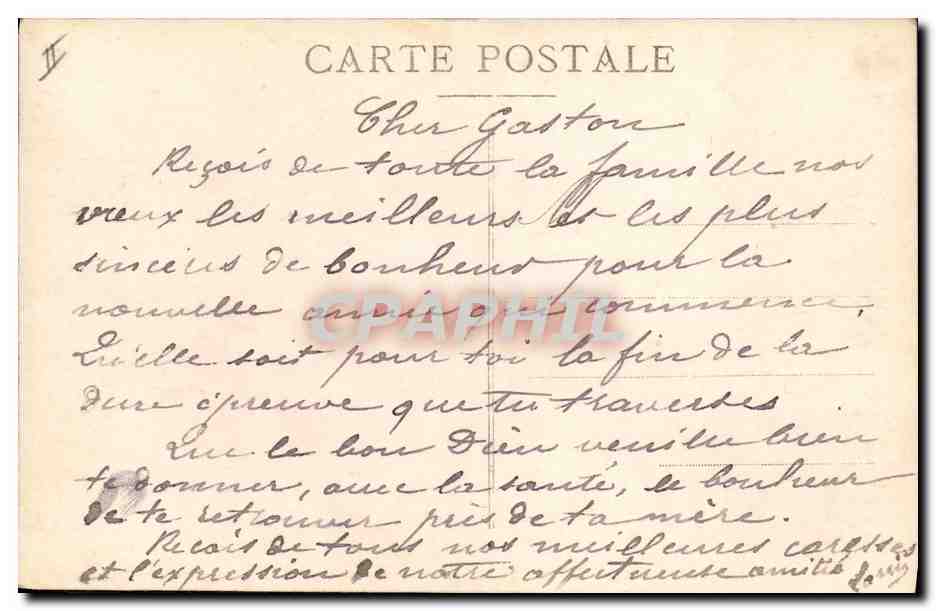 II
CARTE POSTALE
Cher Gaston
Reçois de toute la famille nos
vœux les meilleurs et les plus
sincères de bonheur pour la
nouvelle année qui commence.
Qu'elle soit pour toi la fin de la
dure épreuve que tu traverses
Que le bon Dieu veuille bien
te donner, avec la santé, le bonheur
de te retrouver près de ta mère.
Reçois de tous nos meilleures caresses
et l'expression de notre affectueuse amitié
CPAPHIL